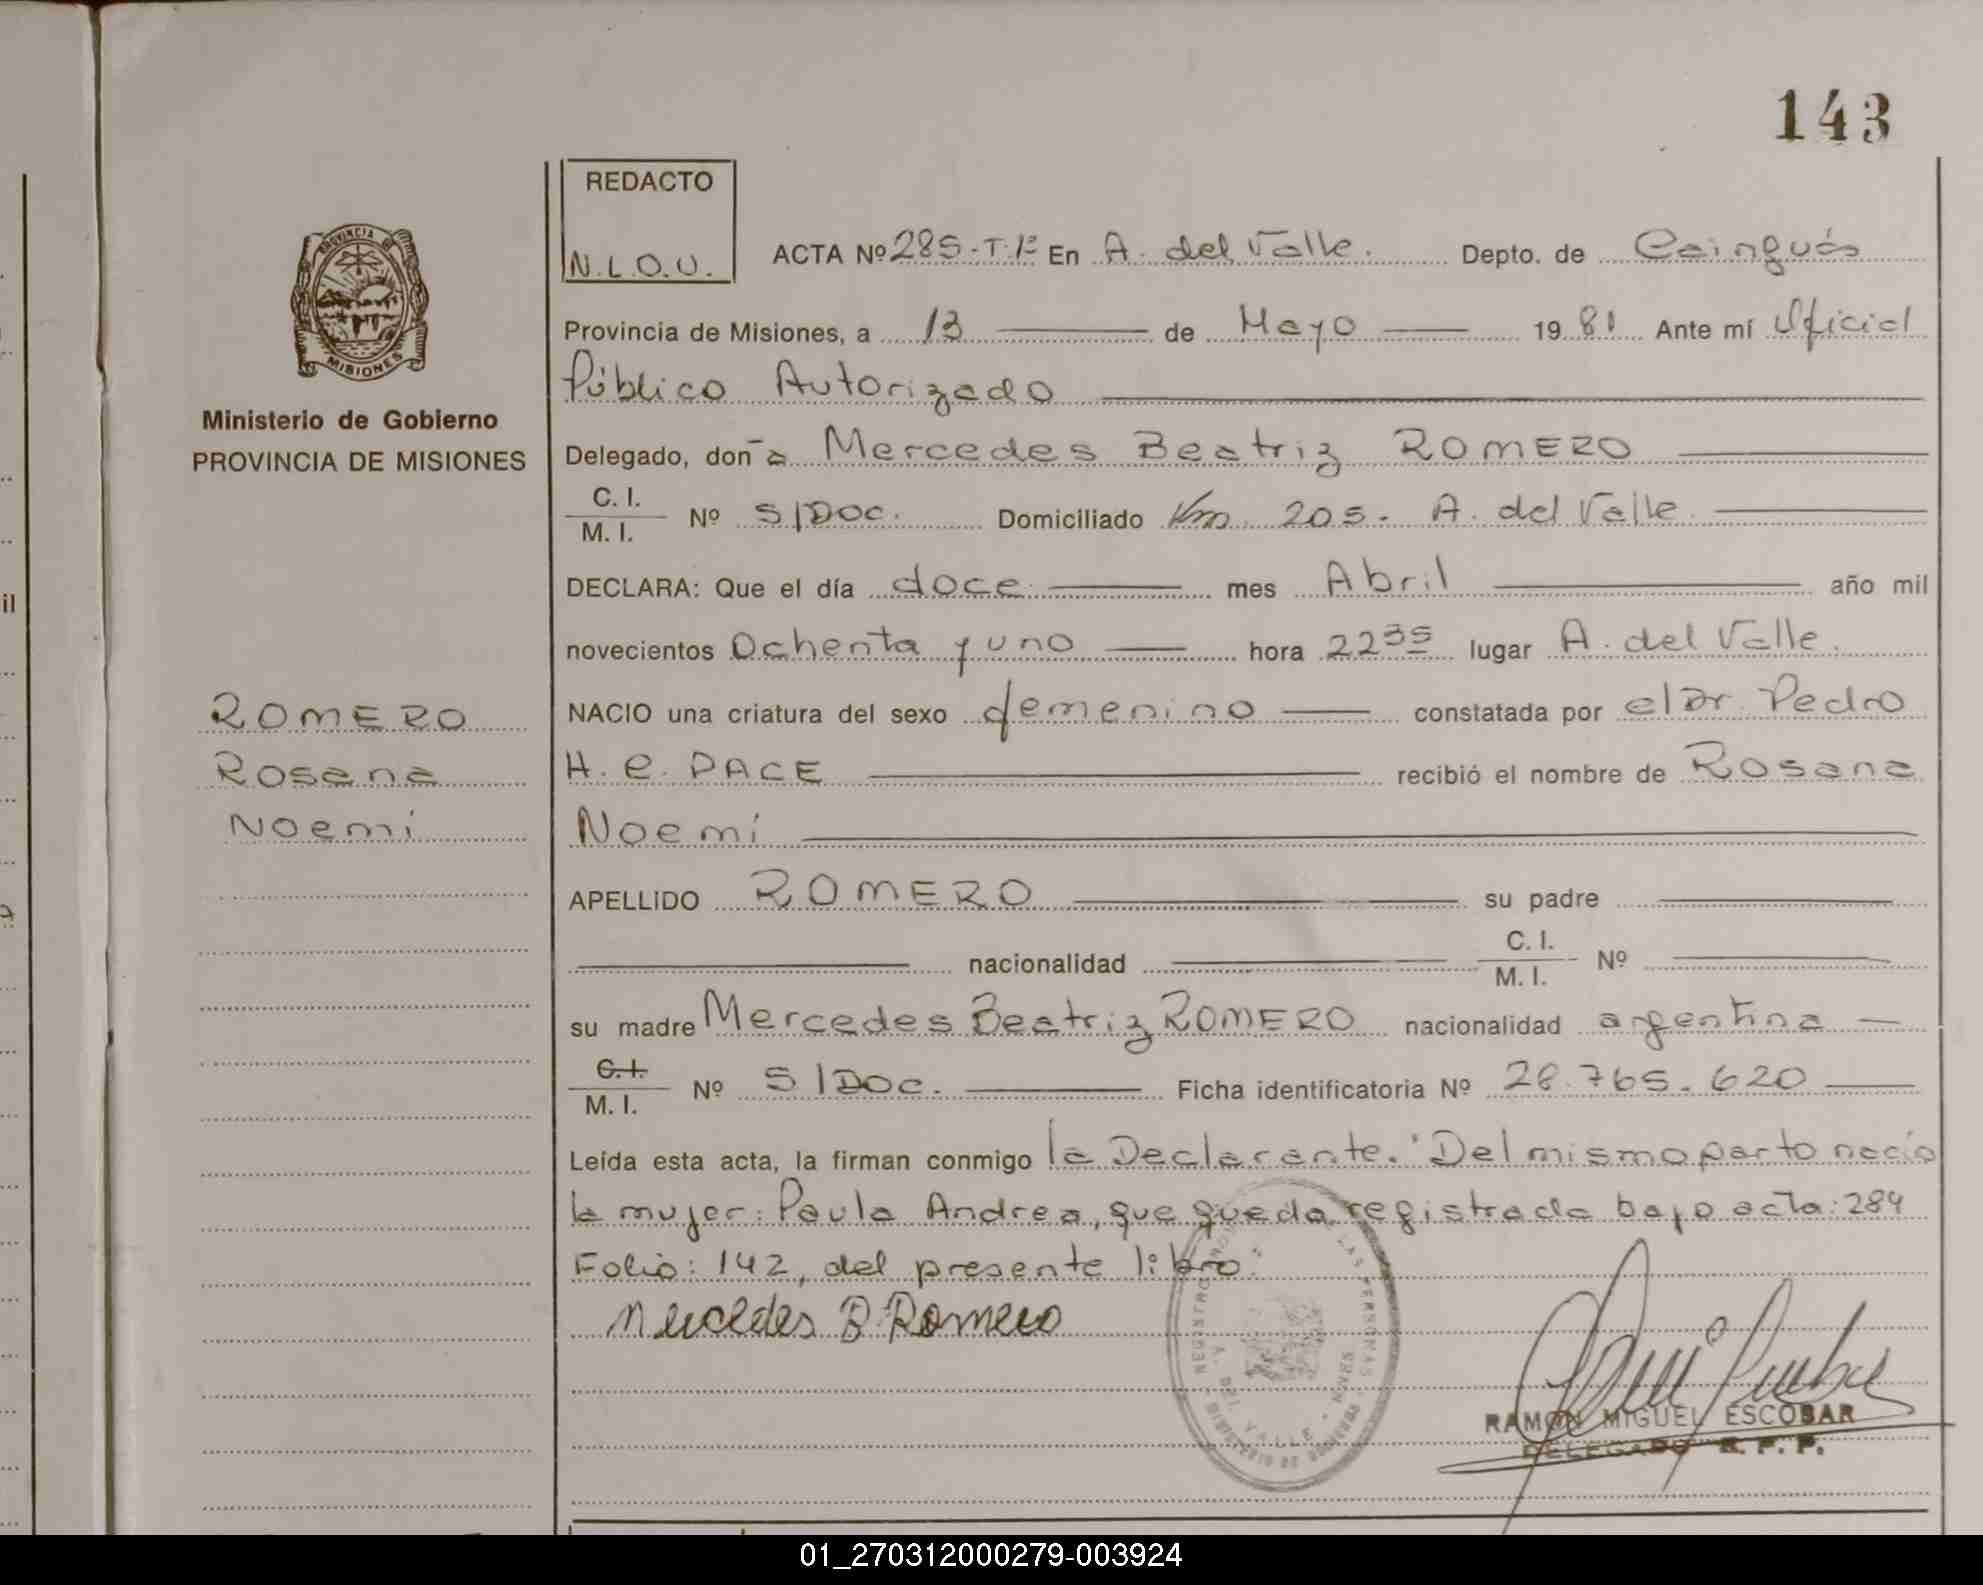 143
REDACTO
N.L.O.U.
ACTA Nº 285-T.1º En A. del Valle. Depto. de Cainguás
PROVINCIA DE
MISIONES
Provincia de Misiones, a 13 de Mayo 1981 Ante mí Oficial
Público Autorizado
Ministerio de Gobierno
PROVINCIA DE MISIONES
Delegado, doña Mercedes Beatriz ROMERO
C. I.
M. I. Nº S/DOC. Domiciliado Km 205. A. del Valle
DECLARA: Que el día doce mes Abril año mil
il
novecientos Ochenta y uno hora 22 35 lugar A. del Valle.
ROMERO
Rosana
Noemí
NACIO una criatura del sexo femenino constatada por el Dr. Pedro
H. C. PACE recibió el nombre de Rosana
Noemí
APELLIDO ROMERO su padre
nacionalidad C. I.
M. I. Nº
su madre Mercedes Beatriz ROMERO nacionalidad argentina
C. I.
M. I. Nº S/DOC. Ficha identificatoria Nº 28.765.620
Leída esta acta, la firman conmigo la Declarante. "Del mismo parto nació
la mujer: Paula Andrea, que queda registrada bajo acta: 284
Folio: 142, del presente libro."
Mercedes B Romero
LAS PERSONAS
A. DEL VALLE
RAMON MIGUEL ESCOBAR
DELEGADO R. P. P.
01_270312000279-003924